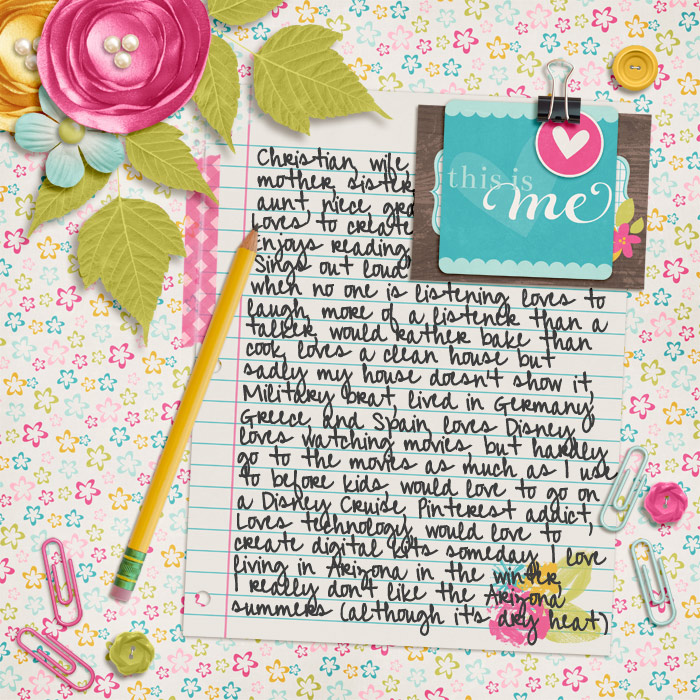 Christian, wife
mother, sister,
aunt, niece,
Loves to create
Enjoys reading,
Sings out loud
when no one is listening, loves to
laugh, more of a listener than a
talker, would rather bake than
cook, loves a clean house but
sadly my house doesn't show it,
Military brat, lived in Germany,
Greece, and Spain, loves Disney,
loves watching movies, but hardly
go to the movies as much as I use
to before kids, would love to go on
a Disney Cruise, Pinterest addict,
Loves technology, would love to
create digital kits someday, I love
living in Arizona in the winter,
I really don't like the Arizona
summers (although it's dry heat)
this is
me